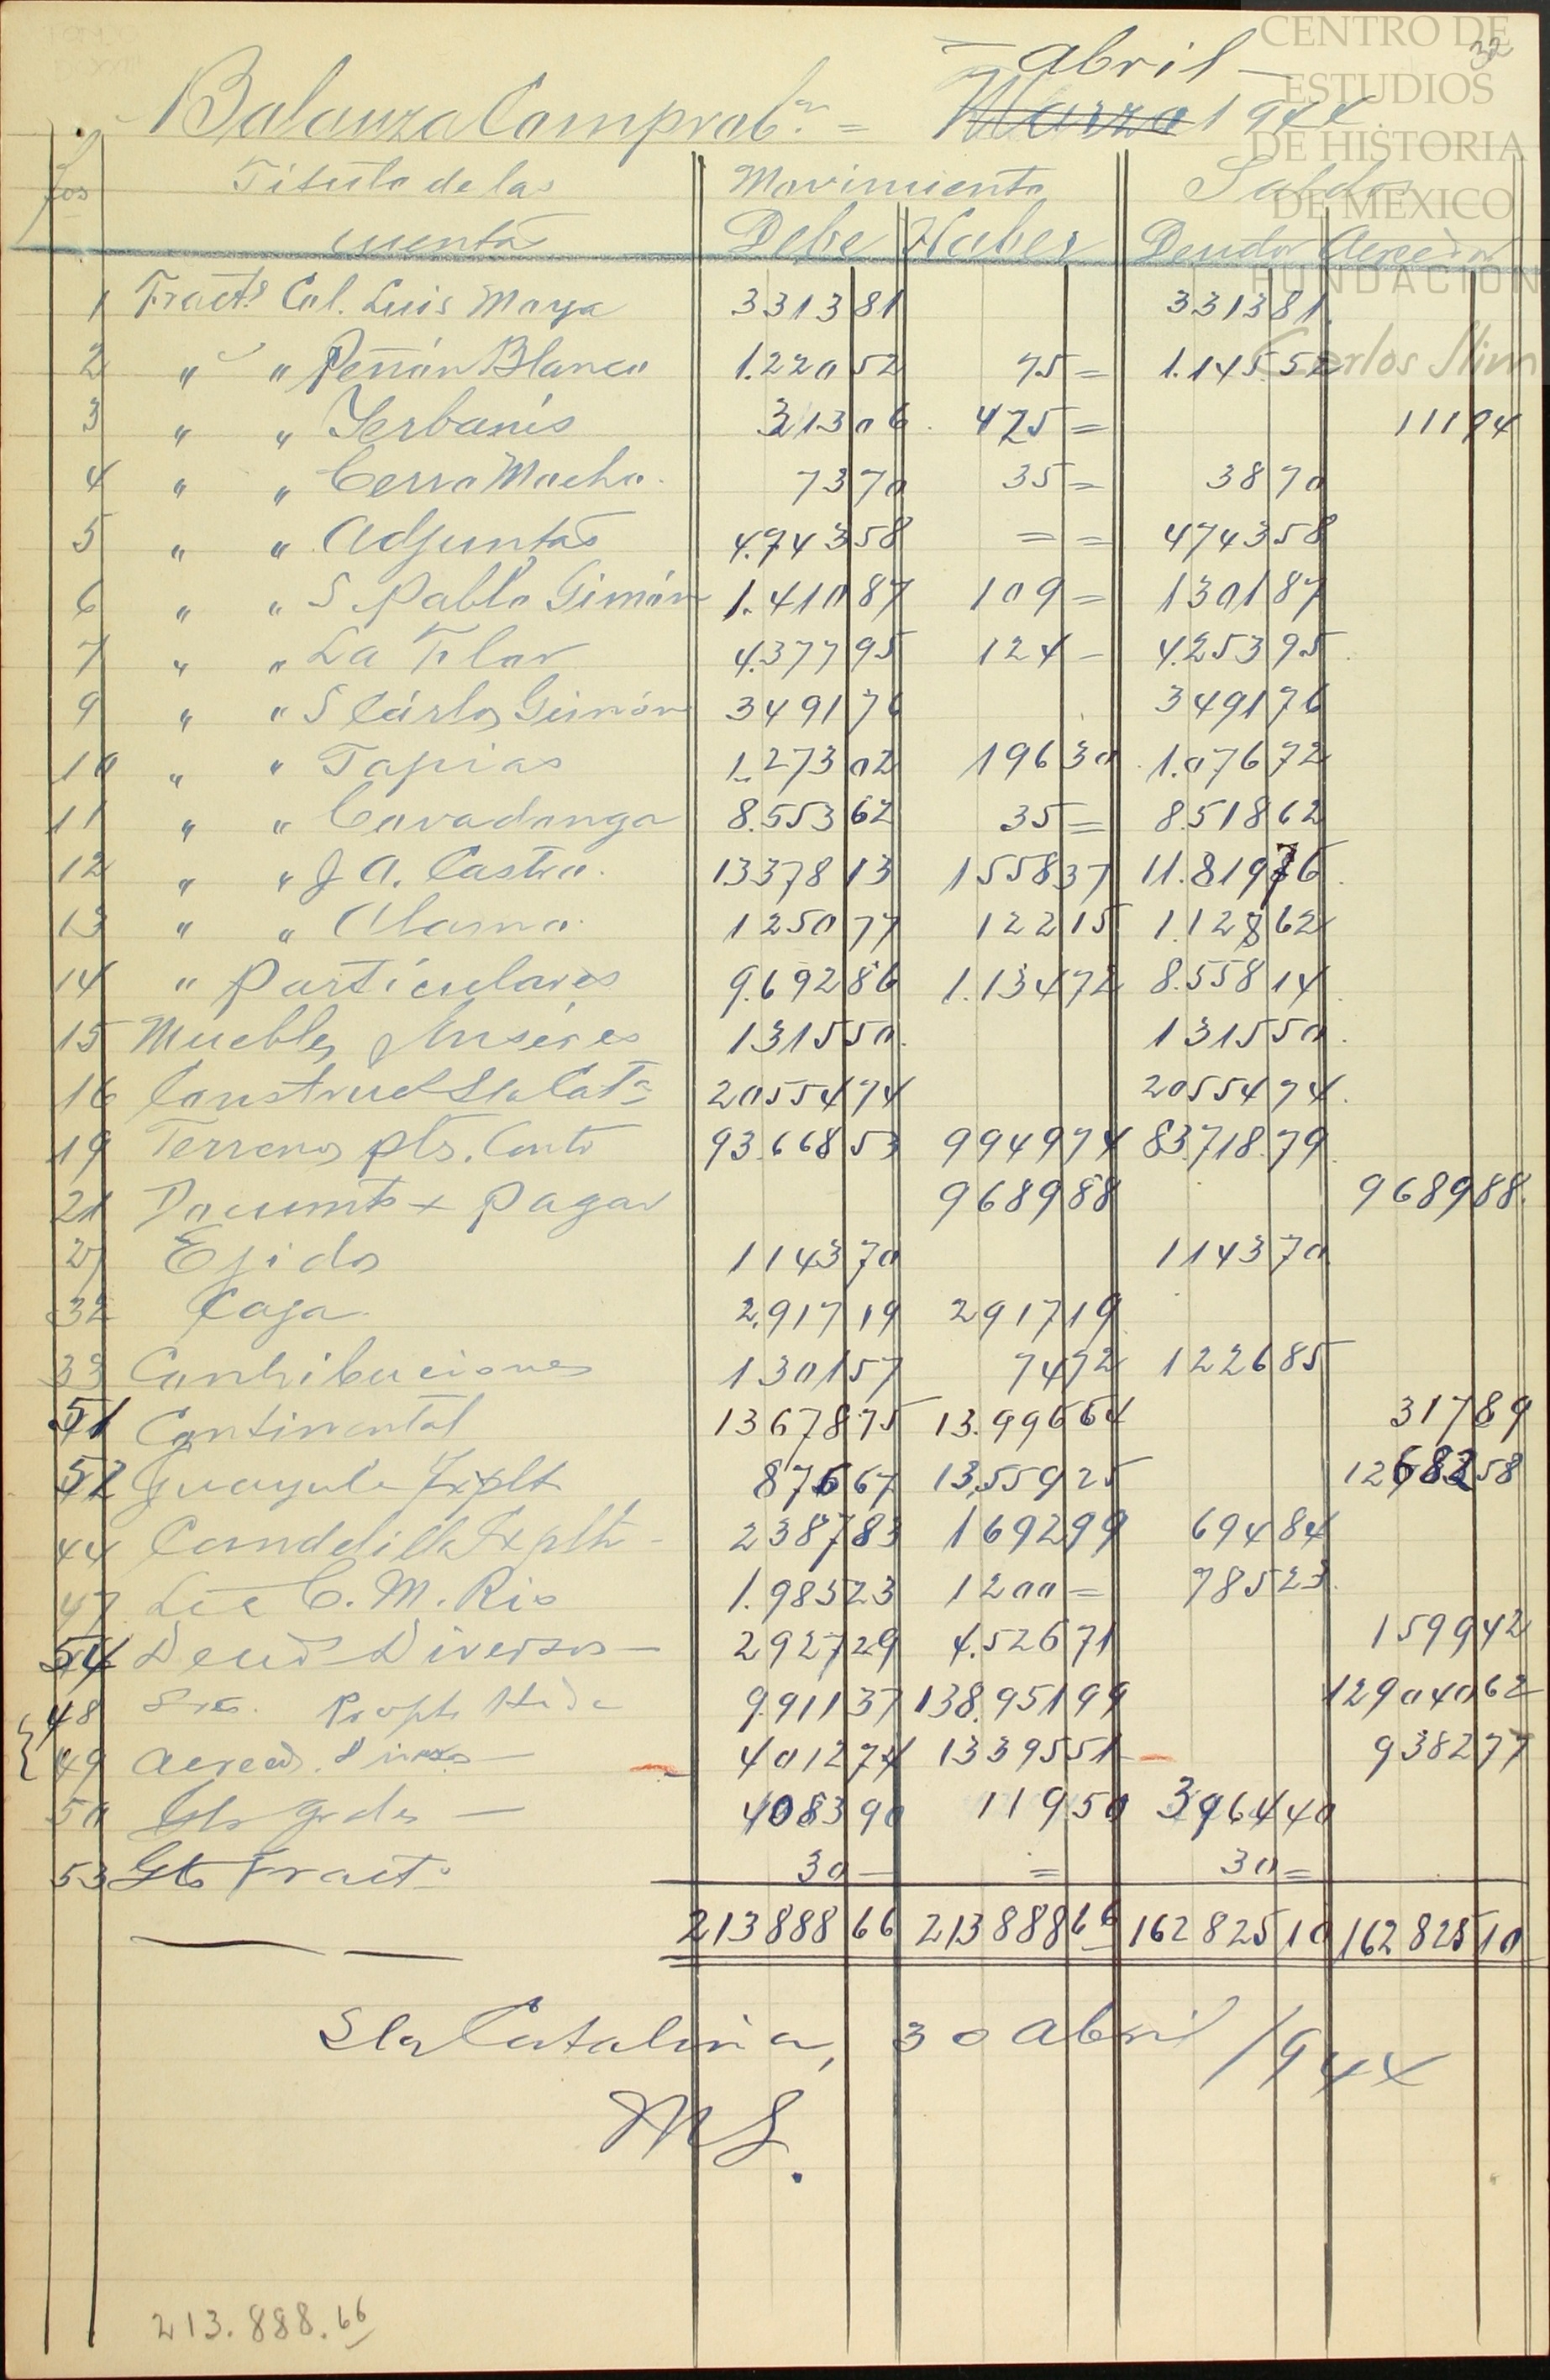 CENTRO DE
ESTUDIOS
DE HISTORIA
DE MEXICO
FUNDACIÓN
Carlos Slim
32
abril
Balanza Comprobn = Marzo 1944.
fos Titulo de las Movimiento Saldos
cuenta Debe Haber Deudor Acreedor
1 Fracts Col. Luis Moya 3313 81 3313 81
2 " " Peñón Blanco 1.220 52 75 = 1.145 52
3 " " Yerbanís 313 06 425 = 111 94
4 " " Cerro Mocho. 73 70 35 = 38 70
5 " " Adjuntas 4.743 58 = = 4743 58
6 " " S Pablo Gimón 1.410 87 109 = 1301 87
7 " " La Flor 4.377 95 124 - 4.253 95
9 " " S Cárlos Gimón 3491 76 3491 76
10 " " Tapias 1.273 02 196 30 1.076 72
11 " " Covadonga 8.553 62 35 = 8.518 62
12 " " J A. Castro. 13378 13 1558 37 11.819 76
13 " " Alamo. 1250 77 122 15 1.128 62
14 " Particulares 9.692 86 1.134 72 8.558 14
15 Muebles y Enséres 1315 50 1315 50
16 Construcs Sta Cata 20554 74 20554 74
19 Terrenos pts. Conto 93.668 53 9949 74 83.718 79
21 Documts x Pagar 9689 88 9689 88
27 Ejido 1143 70 1143 70
32 Caja 2.917 19 2917 19
33 Contribuciones 1301 57 74 72 1226 85
51 Continental 13678 75 13.996 64 317 89
52 Guayule Explt 876 67 13,559 25 12682 58
44 Candelilla Explt - 2387 83 1692 99 694 84
47 Lic C. M. Rio 1.985 23 1200 = 785 23
54 Deuds Diversos - 2927 29 4.526 71 1599 42
48 Sres. Propts Hda 9.911 37 138.951 99 129040 62
49 Acreeds. Divesos - 4012 74 13395 51 9382 77
50 Gts grales - 4083 90 119 50 3964 40
53 Gts Fracts 30 - = 30 =
213888 66 213888 66 162825 10 162825 10
Sta Catalina, 30 abril /944
M S.
213.888.66